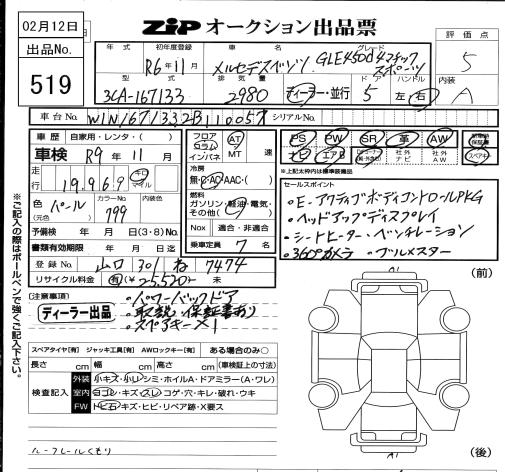 02月12日
出品No.
519
ZiP オークション出品票
評価点
5
内装
A
年式 初年度登録 車名 グレード
R6年11月 メルセデスベンツ GLE450d 4マチック スポーツ
型式 排気量 ドア ハンドル
3CA-167133 2980 ディーラー・並行 5 左・右
車台No. W1N1671332B110057 シリアルNo.
車歴 自家用・レンタ・( )
車検 R9年11月
走行 19,969 キロ マイル
色 パール (元色) カラーNo. 799 内装色
予備検 年 月 日(3・8)No.
書類有効期限 年 月 日迄
登録No. 山口 301 ね 7474
リサイクル料金 有(¥25,520) 未
フロア コラム インパネ AT MT 速
冷房 無・C・AC・AAC・( )
燃料 ガソリン・軽油・電気・その他( )
Nox 適合・非適合
乗車定員 7 名
PS PW SR 革 AW
ナビ エアB 社外ナビ 社外AW スペアキー
※上記太枠内は標準装備品
セールスポイント
・E-アクティブボディコントロールPKG
・ヘッドアップディスプレイ
・シートヒーター・ベンチレーション
・360°カメラ ・ブルメスター
[注意事項]
ディーラー出品
・パワーバックドア
・取説、保証書あり
・スペアキー×1
※ご記入の際はボールペンで強くご記入下さい。
スペアタイヤ[有] ジャッキ工具[有] AWロックキー[有] ある場合のみ○
長さ cm 幅 cm 高さ cm (車検証上の寸法)
検査記入
外装 小キズ・小凹・シミ・ホイルA・ドアミラー(A・ワレ)
室内 ヨゴレ・キズ・スレ・コゲ・穴・キレ・破れ・ウキ
FW トビ石・キズ・ヒビ・リペア跡・X要ス
ルーフレールくもり
(前)
A1
A1
(後)